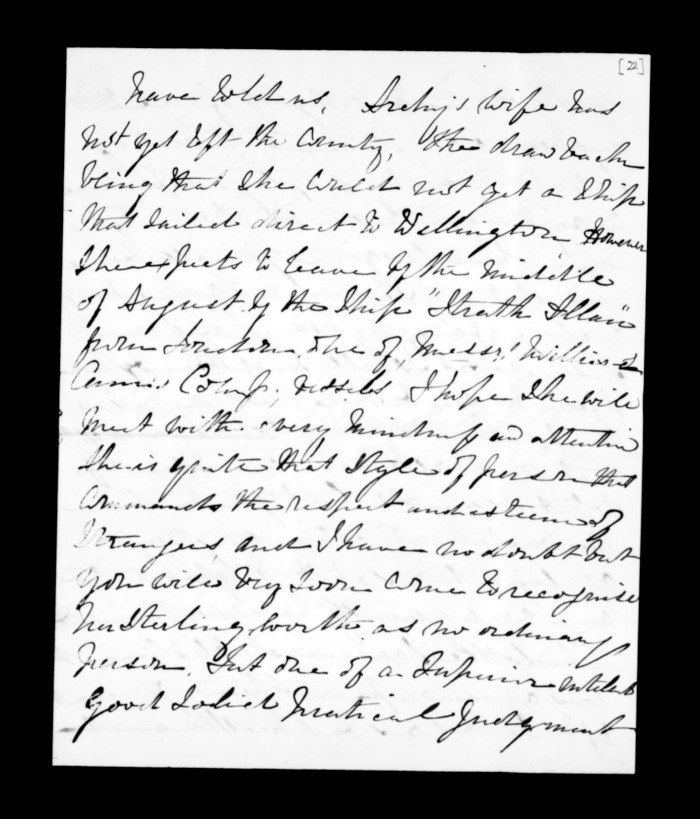 [22]
have told us, Archy's wife has
not yet left the County, the draw back
being that she could not get a Ship
that sailed direct to Wellington However
she expects to leave by the middle
of August by the Ship "Strath Allan"
from London, one of, Messrs.
Comp, vessels I hope she will
meet with every kindness and attention
she is quite that style of person that
commands the respect and esteem of
Strangers, and I have no doubt but
you will very soon come to recognise
her Sterling worth as no ordinary
person, but one of a Superior intellect
good solid Practical Judgment